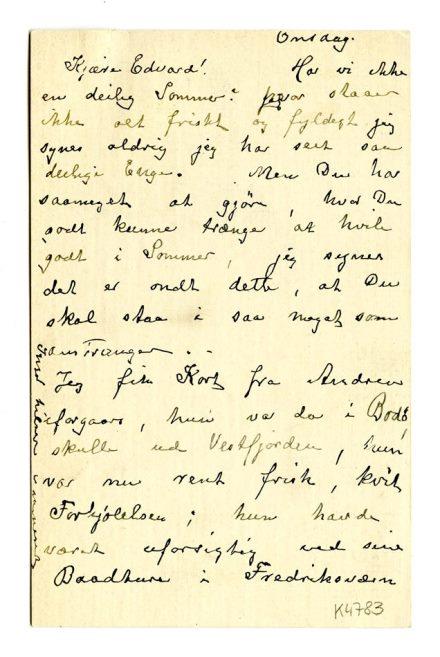 Onsdag.
Kjære Edvard! Har vi ikke
en deilig Sommer? hvor staaer
ikke alt friskt og fyldegt jeg
synes aldrig jeg har seet saa
deilige Enge. Men Du har
saameget at gjøre, hvor Du
godt kunne trænge at hvile
godt i Sommer, jeg synes
det er ondt dette, at Du
skal staa i saa meget som
Trænger . .
Jeg fik Kort fra Andrea
iforgaars, hun var da i Bodø,
skulle ud Vestfjorden, hun
var nu rent frisk, kvit
Forkjølelsen; hun havde
været uforsigtig ved sine
Baadture i Fredriksværn
K4783